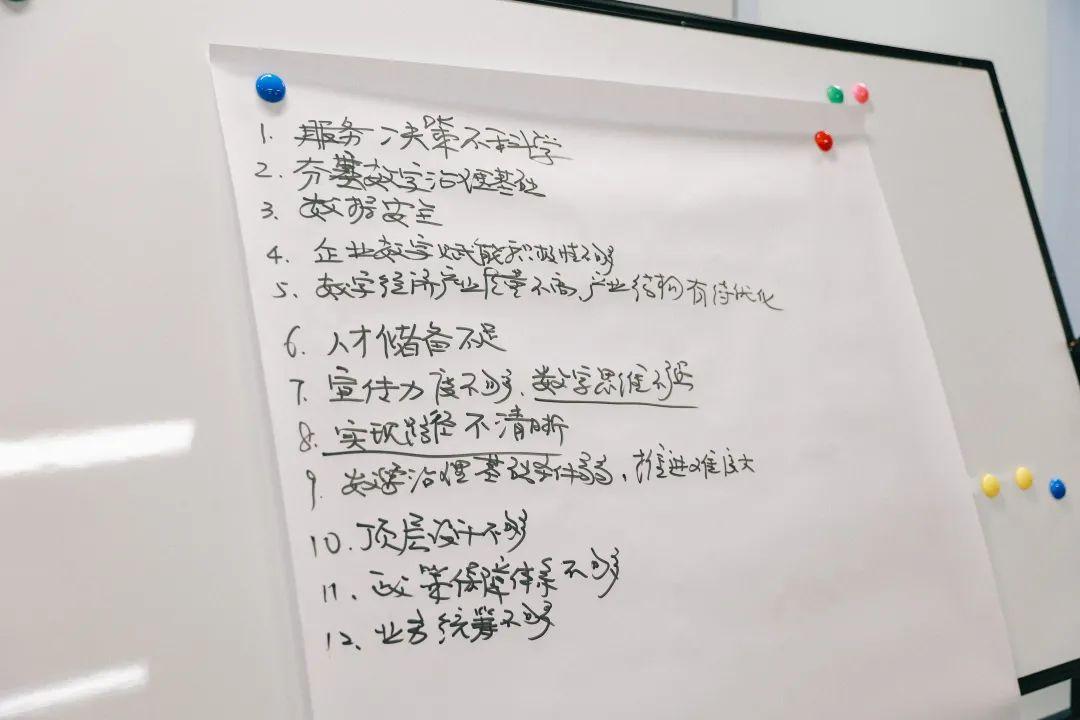 1. 服务、决策不科学
2. 夯基数字治理基础
3. 数据安全
4. 企业数字赋能积极性不够
5、数字经济产业质量不高,产业结构有待优化
6. 人才储备不足
7. 宣传力度不够、数字思维不强
8. 实现路径不清晰
9、数字治理基础条件弱,推进难度大
10.顶层设计不够
11、政策保障体系不够
12、业务统筹不够